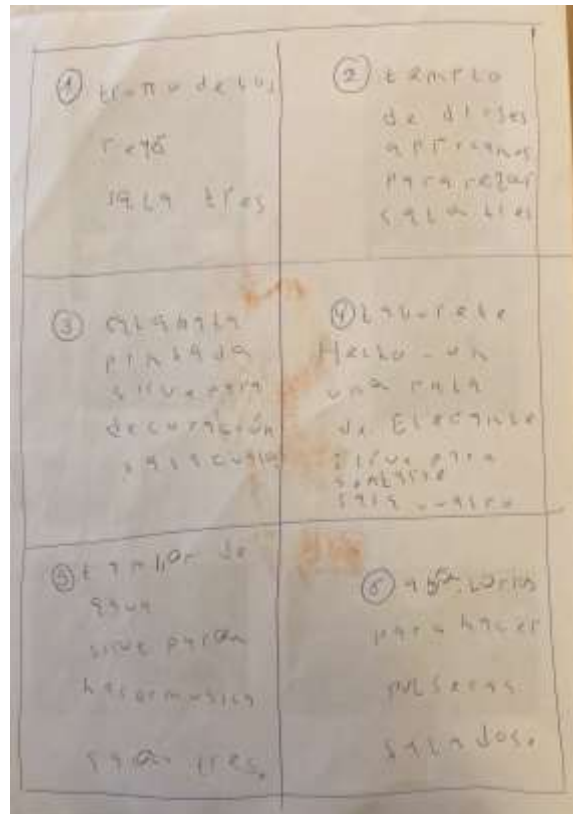 ① trono de los
reye
sala tres
② templo
de dioses
africanos
para rezar
sala tres
③ calabaza
pintada
sirve para
decoración
④ taburete
Hecho con
una pata
de Elefante
sirve para
sentarse
sala cuatro
⑤ tambor de
agua
sirve para
hacer musica
sala tres.
⑥
para hacer
pulseras
sala dos.